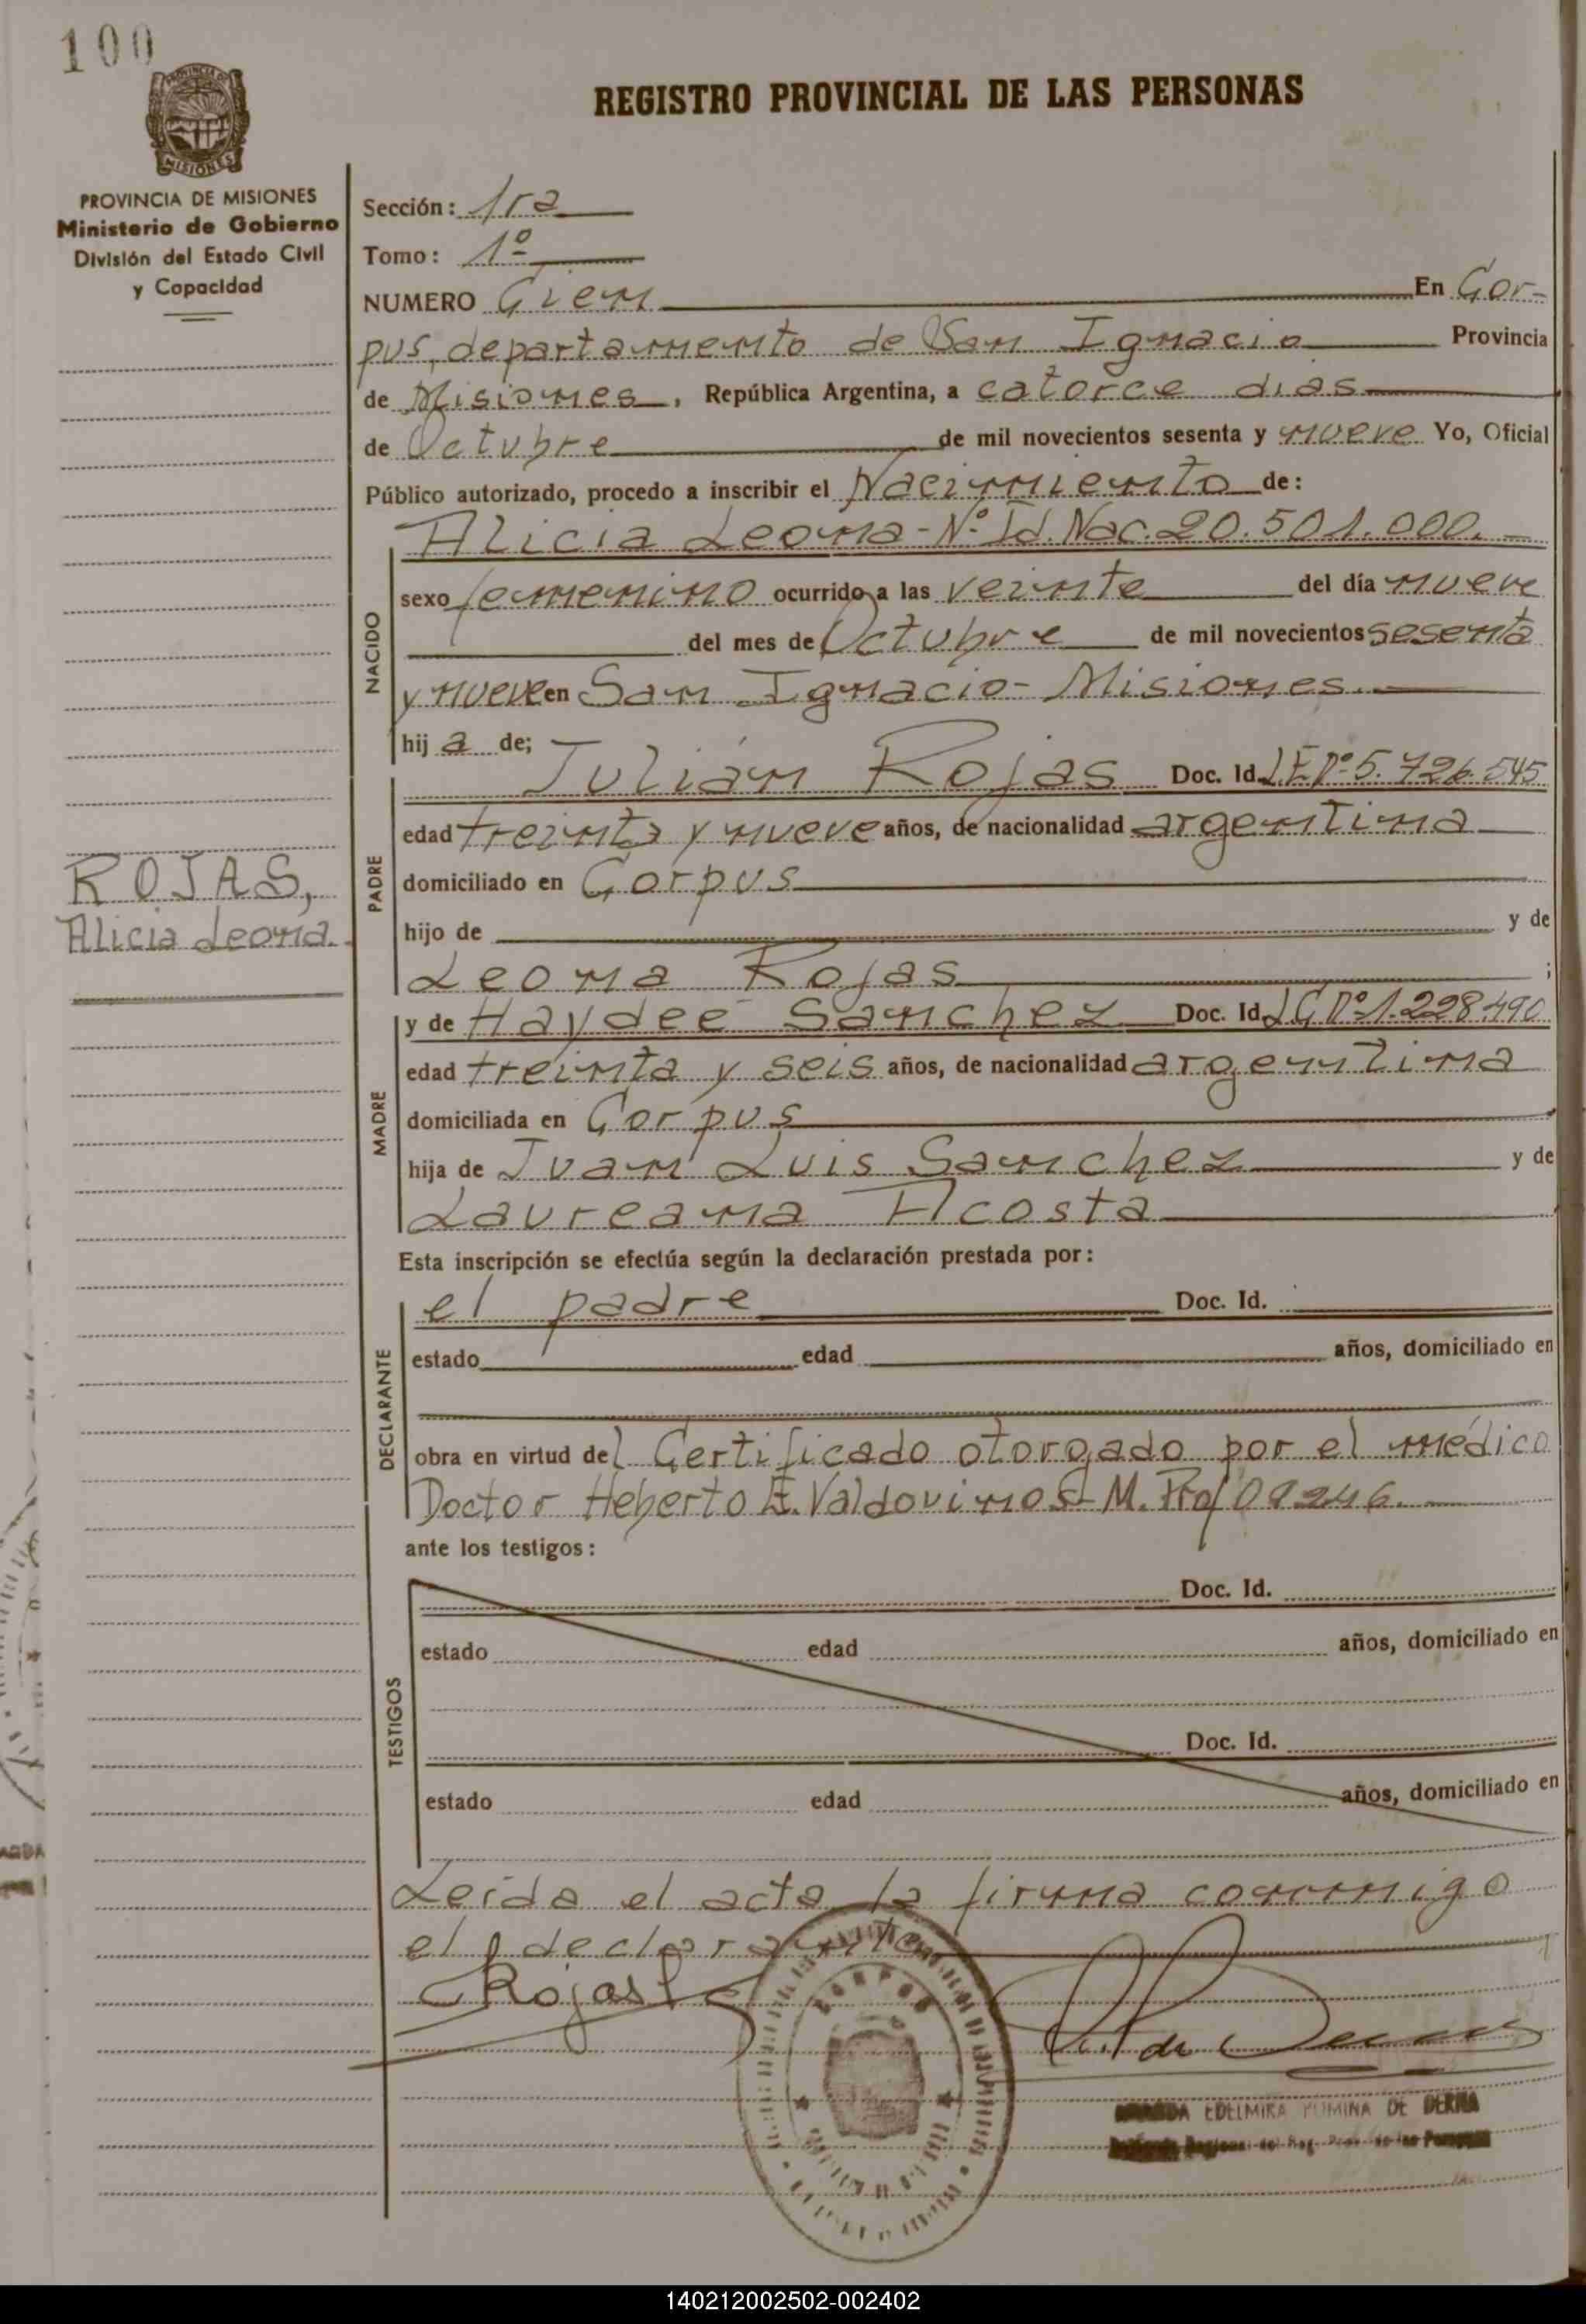 100
PROVINCIA DE
MISIONES
REGISTRO PROVINCIAL DE LAS PERSONAS
PROVINCIA DE MISIONES
Ministerio de Gobierno
División del Estado Civil
y Capacidad
Sección: 1ra
Tomo: 1º
NUMERO Cien En Cor-
pus, departamento de San Ignacio Provincia
de Misiones, República Argentina, a catorce dias
de Octubre de mil novecientos sesenta y nueve Yo, Oficial
Público autorizado, procedo a inscribir el Nacimiento de:
Alicia Leona - Nº Id. Nac. 20.501.000.-
NACIDO
sexo femenino ocurrido a las veinte del día nueve
del mes de Octubre de mil novecientos sesenta
y nueve en San Ignacio - Misiones.
hij a de;
Julián Rojas Doc. Id. L.E Nº 5.726.545
PADRE
edad treinta y nueve años, de nacionalidad argentina
domiciliado en Corpus
hijo de y de
Leona Rojas ;
ROJAS,
Alicia Leona.
y de Haydeé Sanchez Doc. Id. L.C Nº 1.228.490
MADRE
edad treinta y seis años, de nacionalidad argentina
domiciliada en Corpus
hija de Juan Luis Sanchez y de
Laureana Acosta
Esta inscripción se efectúa según la declaración prestada por:
DECLARANTE
el padre Doc. Id.
estado edad años, domiciliado en
obra en virtud del Certificado otorgado por el médico
Doctor Heberto E. Valdovinos - M. Prof
ante los testigos:
TESTIGOS
Doc. Id.
estado edad años, domiciliado en
Doc. Id.
estado edad años, domiciliado en
Leída el acta la firma conmigo
el declarante
Rojas
CORPUS
EDELMIRA DE DERNA
140212002502-002402